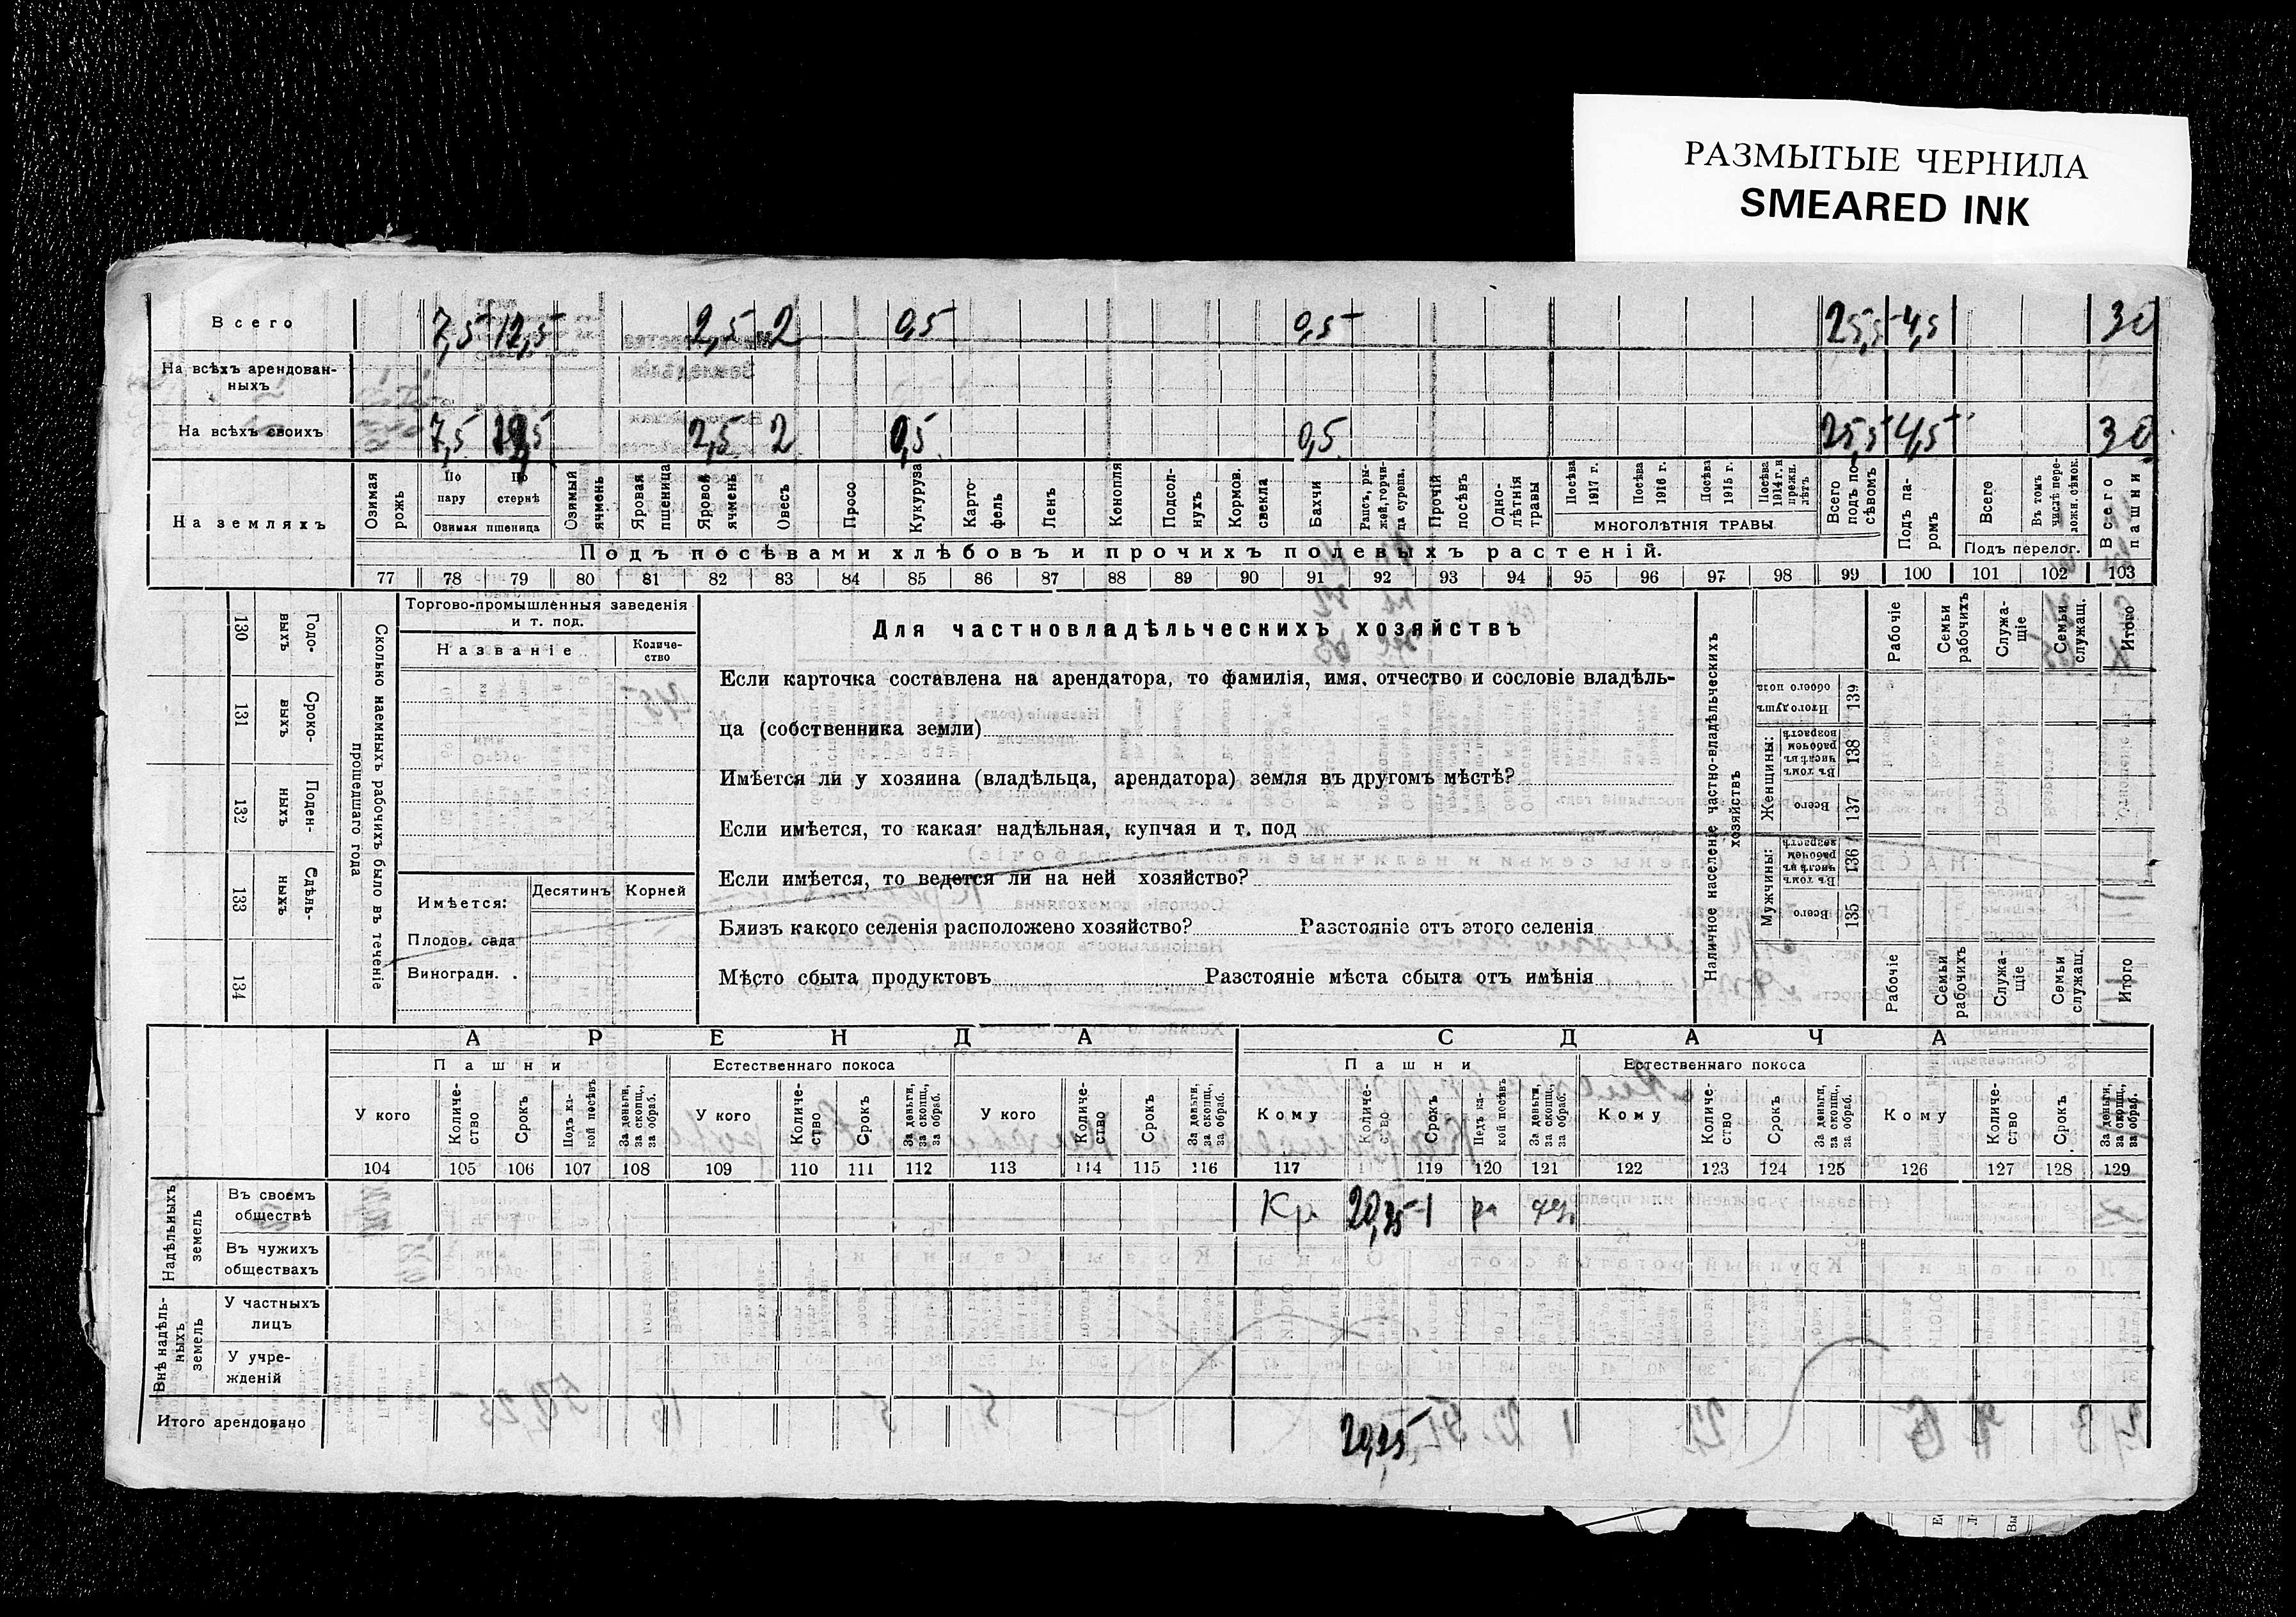 РАЗМЫТЫЕ ЧЕРНИЛА
SMEARED INK
Всего 7,5 12,5 2,5 2 0,5 0,5 25,5 4,5 30
На всѣхъ арендован-
ныхъ
На всѣхъ своихъ 7,5 2,5 2 0,5 0,5 25,5 4,5 30
На земляхъ
Озимая рожь
По пару
По стернѣ
Озимая пшеница
Озимый ячмень
Яровая пшеница
Яровой ячмень
Овесъ
Просо
Кукуруза
Карто-
фель
Ленъ
Конопля
Подсол-
нухъ
Кормов. свекла
Бахчи
Рапсъ, ры-
жей, горчи-
ца сурепа.
Прочій посѣвъ
Одно-
лѣтнія травы
Посѣва 1917 г.
Посѣва 1916 г.
Посѣва 1915 г.
Посѣва 1914 г. и прежн. лѣтъ
МНОГОЛѢТНІЯ ТРАВЫ
Всего подъ по-
сѣвомъ
Подъ па-
ромъ
Всего
Въ томъ числѣ пере-
ложн. сѣнок.
Подъ перелог.
Всего пашни
Подъ посѣвами хлѣбовъ и прочихъ полевыхъ растеній.
77 78 79 80 81 82 83 84 85 86 87 88 89 90 91 92 93 94 95 96 97 98 99 100 101 102 103
130 Годо-
выхъ
131 Сроко-
выхъ
132 Поден-
ныхъ
133 Сдѣль-
ныхъ
134
Сколько наемныхъ рабочихъ было въ теченіе
прошедшаго года
Торгово-промышленныя заведенія
и т. под.
Названіе
Количе-
ство
Имѣется:
Десятинъ Корней
Плодов. сада
Виноградн. .
Для частновладѣльческихъ хозяйствъ
Если карточка составлена на арендатора, то фамилія, имя, отчество и сословіе владѣль-
ца (собственника земли)
Имѣется ли у хозяина (владѣльца, арендатора) земля въ другомъ мѣстѣ?
Если имѣется, то какая: надѣльная, купчая и т. под
Если имѣется, то ведется ли на ней хозяйство?
Близъ какого селенія расположено хозяйство? Разстояніе отъ этого селенія
Мѣсто сбыта продуктовъ Разстояніе мѣста сбыта отъ имѣнія
Наличное населеніе частно-владѣльческихъ
хозяйствъ
Итого душъ обоего пола 139
Женщины:
Въ томъ числѣ въ рабочемъ возрастѣ 138
Всего 137
Мужчины:
Въ томъ числѣ въ рабочемъ возрастѣ 136
Всего 135
Рабочіе
Семьи рабочихъ
Служа-
щіе
Семьи служащ.
Итого
Рабочіе
Семьи рабочихъ
Служа-
щіе
Семьи служащ.
Итого
АРЕНДА СДАЧА
Пашни Естественнаго покоса Пашни Естественнаго покоса
У кого
Количе-
ство
Срокъ
Подъ ка-
кой посѣвъ
За деньги, за скопщ., за обраб.
У кого
Количе-
ство
Срокъ
За деньги, за скопщ., за обраб.
У кого
Количе-
ство
Срокъ
За деньги, за скопщ., за обраб.
Кому
Количе-
ство
Срокъ
Подъ ка-
кой посѣвъ
За деньги, за скопщ., за обраб.
Кому
Количе-
ство
Срокъ
За деньги, за скопщ., за обраб.
Кому
Количе-
ство
Срокъ
За деньги, за скопщ., за обраб.
104 105 106 107 108 109 110 111 112 113 114 115 116 117 119 120 121 122 123 124 125 126 127 128 129
Надѣльныхъ
земель
Въ своемъ
обществѣ
Кр 1
Въ чужихъ
обществахъ
Внѣ надѣль-
ныхъ
земель
У частныхъ
лицъ
У учре-
жденій
Итого арендовано 20,25